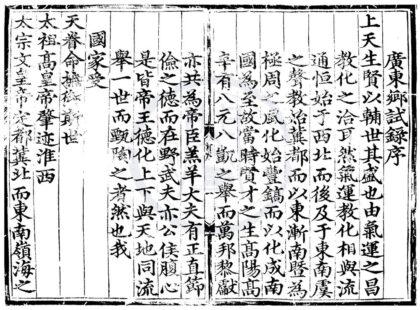 廣東鄉試錄序
上天生賢以輔世其盛也由氣運之昌
教化之洽耳然氣運教化相與流
通恒始于西北而後及于東南虞
之聲教始冀都而以東漸南暨為
極周之風化始豐鎬而以化成南
國為至故當時賢才之生高陽高
辛有八元八凱之舉而萬邦黎獻
亦共為帝臣羔羊大夫有正直節
儉之德而在野武夫亦公侯腹心
是皆帝王德化上下與天地同流
舉一世而甄陶之者然也我
國家受
天眷命撫綏斯世
太祖高皇帝肇迹淮西
太宗文皇帝定都冀北而東南嶺海之